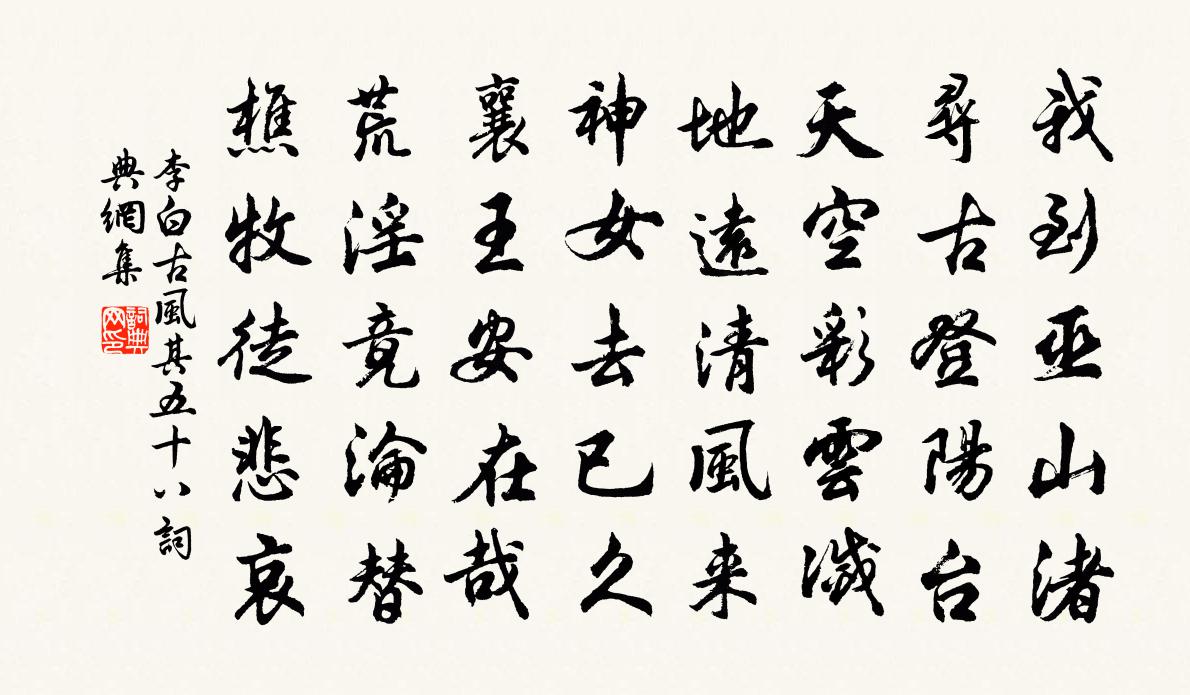 我到巫山渚
尋古登陽台
天空彩雲滅
地遠清風来
神女去已久
襄王安在哉
荒淫竟淪替
樵牧徒悲哀
李白古風其五十八詞
典網集
詞典
网印